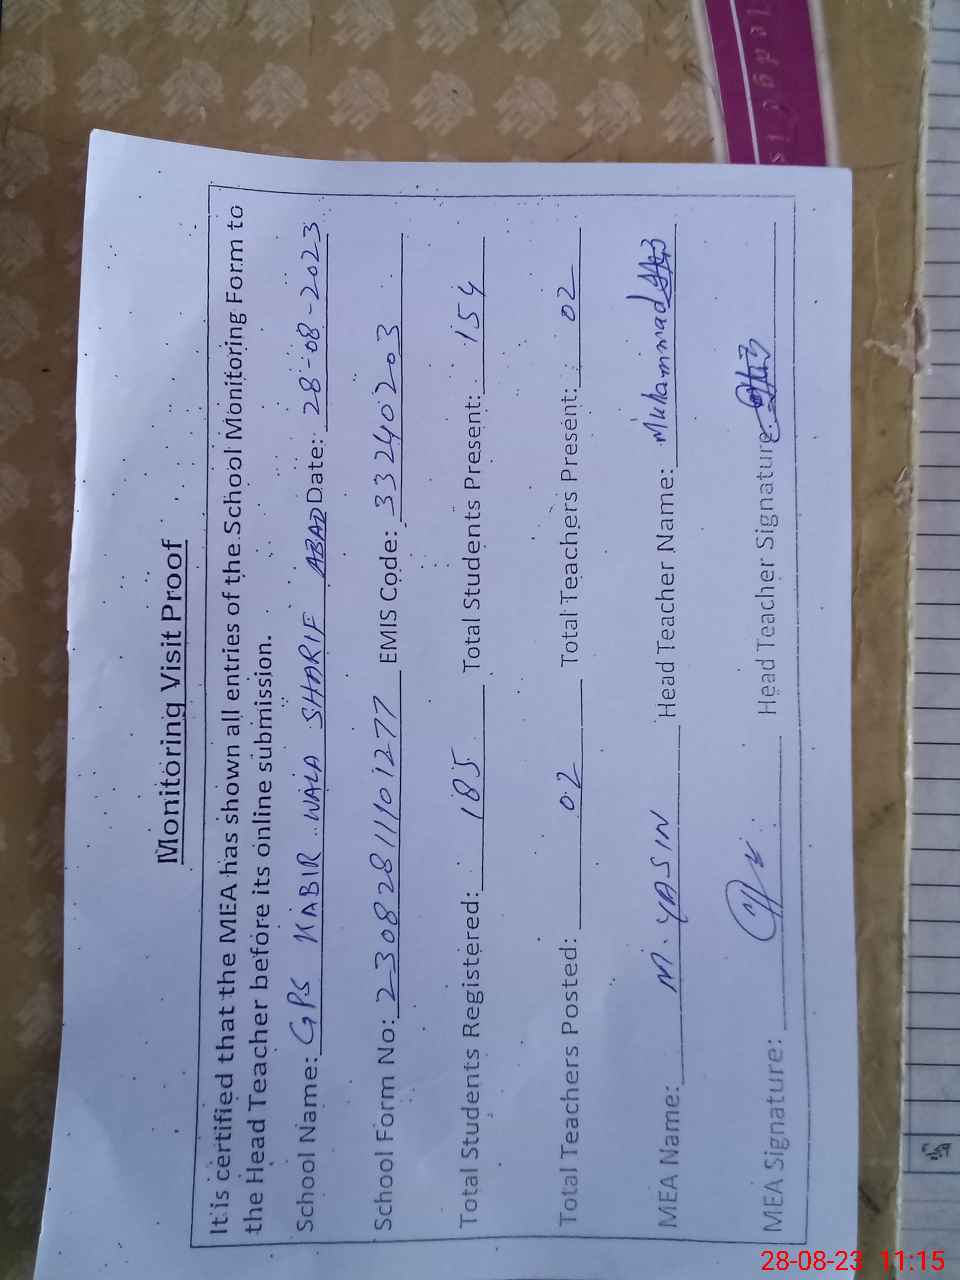 Monitoring Visit Proof
It is certified that the MEA has shown all entries of the School Monitoring Form to
the Head Teacher before its online submission.
School Name: GPS KABIR WALA SHARIF ABAD Date: 28-08-2023
School Form No: 23082811101277 EMIS Code: 33240203
Total Students Registered: 185 Total Students Present: 154
Total Teachers Posted: 02 Total Teachers Present: 02
MEA Name: M. YASIN Head Teacher Name: Muhammad
MEA Signature: Head Teacher Signature:
28-08-23 11:15